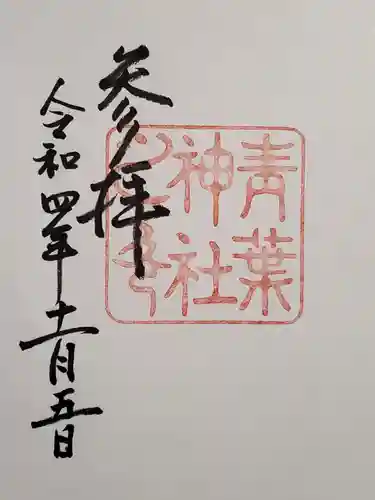 参拝
青葉
神社
之印
令和四年十一月五日